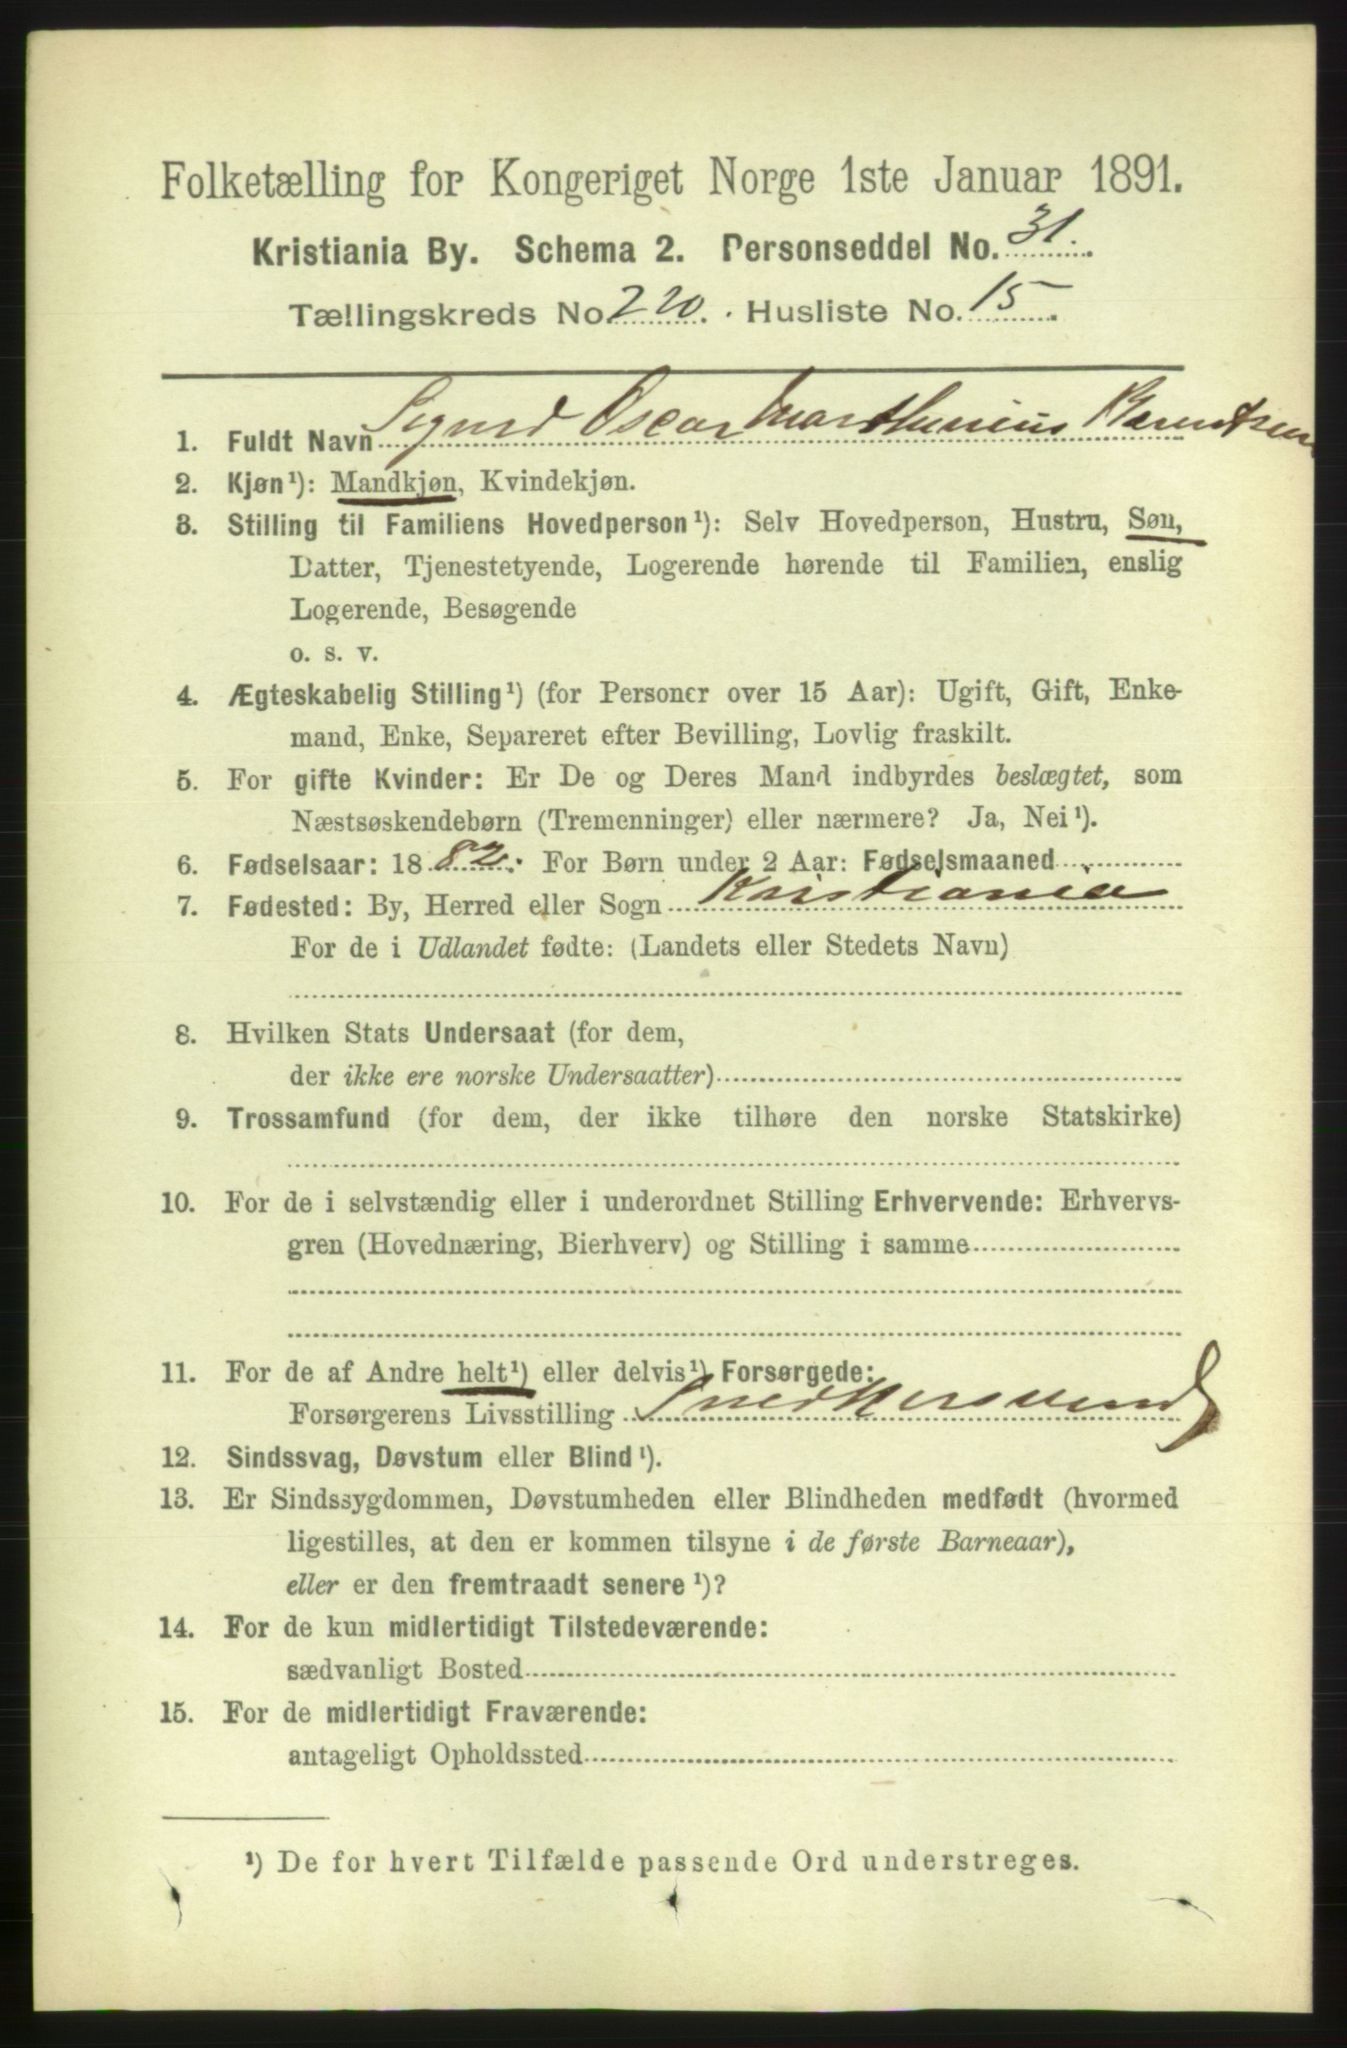 Folketælling for Kongeriget Norge 1ste Januar 1891.
Kristiania By. Schema 2. Personseddel No. 31.
Tællingskreds No. 220. Husliste No. 15.
1. Fuldt Navn Sigurd Oscar Marthinius Berntsen
2. Kjøn¹): Mandkjøn, Kvindekjøn.
3. Stilling til Familiens Hovedperson¹): Selv Hovedperson, Hustru, Søn,
Datter, Tjenestetyende, Logerende hørende til Familien, enslig
Logerende, Besøgende
o. s. v.
4. Ægteskabelig Stilling¹) (for Personer over 15 Aar): Ugift, Gift, Enke-
mand, Enke, Separeret efter Bevilling, Lovlig fraskilt.
5. For gifte Kvinder: Er De og Deres Mand indbyrdes beslægtet, som
Næstsøskendebørn (Tremenninger) eller nærmere? Ja, Nei¹).
6. Fødselsaar: 1882. For Børn under 2 Aar: Fødselsmaaned
7. Fødested: By, Herred eller Sogn Kristiania
For de i Udlandet fødte: (Landets eller Stedets Navn)
8. Hvilken Stats Undersaat (for dem,
der ikke ere norske Undersaatter)
9. Trossamfund (for dem, der ikke tilhøre den norske Statskirke)
10. For de i selvstændig eller i underordnet Stilling Erhvervende: Erhvervs-
gren (Hovednæring, Bierhverv) og Stilling i samme
11. For de af Andre helt¹) eller delvis¹) Forsørgede:
Forsørgerens Livsstilling Snedkersvend
12. Sindssvag, Døvstum eller Blind¹).
13. Er Sindssygdommen, Døvstumheden eller Blindheden medfødt (hvormed
ligestilles, at den er kommen tilsyne i de første Barneaar),
eller er den fremtraadt senere¹)?
14. For de kun midlertidigt Tilstedeværende:
sædvanligt Bosted
15. For de midlertidigt Fraværende:
antageligt Opholdssted
¹) De for hvert Tilfælde passende Ord understreges.